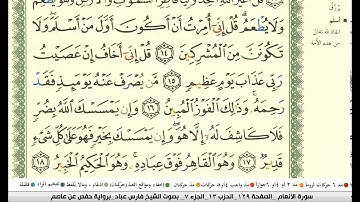 وَلَا يُطْعَمُ ۗ قُلْ إِنِّي أُمِرْتُ أَنْ أَكُونَ أَوَّلَ مَنْ أَسْلَمَ ۖ وَلَا
تَكُونَنَّ مِنَ الْمُشْرِكِينَ ۝١٤ قُلْ إِنِّي أَخَافُ إِنْ عَصَيْتُ
رَبِّي عَذَابَ يَوْمٍ عَظِيمٍ ۝١٥ مَّن يُصْرَفْ عَنْهُ يَوْمَئِذٍ فَقَدْ
رَحِمَهُ ۚ وَذَٰلِكَ الْفَوْزُ الْمُبِينُ ۝١٦ وَإِن يَمْسَسْكَ اللَّهُ بِضُرٍّ
فَلَا كَاشِفَ لَهُ إِلَّا هُوَ ۖ وَإِن يَمْسَسْكَ بِخَيْرٍ فَهُوَ عَلَىٰ كُلِّ شَيْءٍ
قَدِيرٌ ۝١٧ وَهُوَ الْقَاهِرُ فَوْقَ عِبَادِهِ ۚ وَهُوَ الْحَكِيمُ الْخَبِيرُ ۝١٨
سورة الأنعام _الصفحة ١٢٩_الحزب ١٣_الجزء ٧_ بصوت الشيخ فارس عباد_برواية حفص عن عاصم